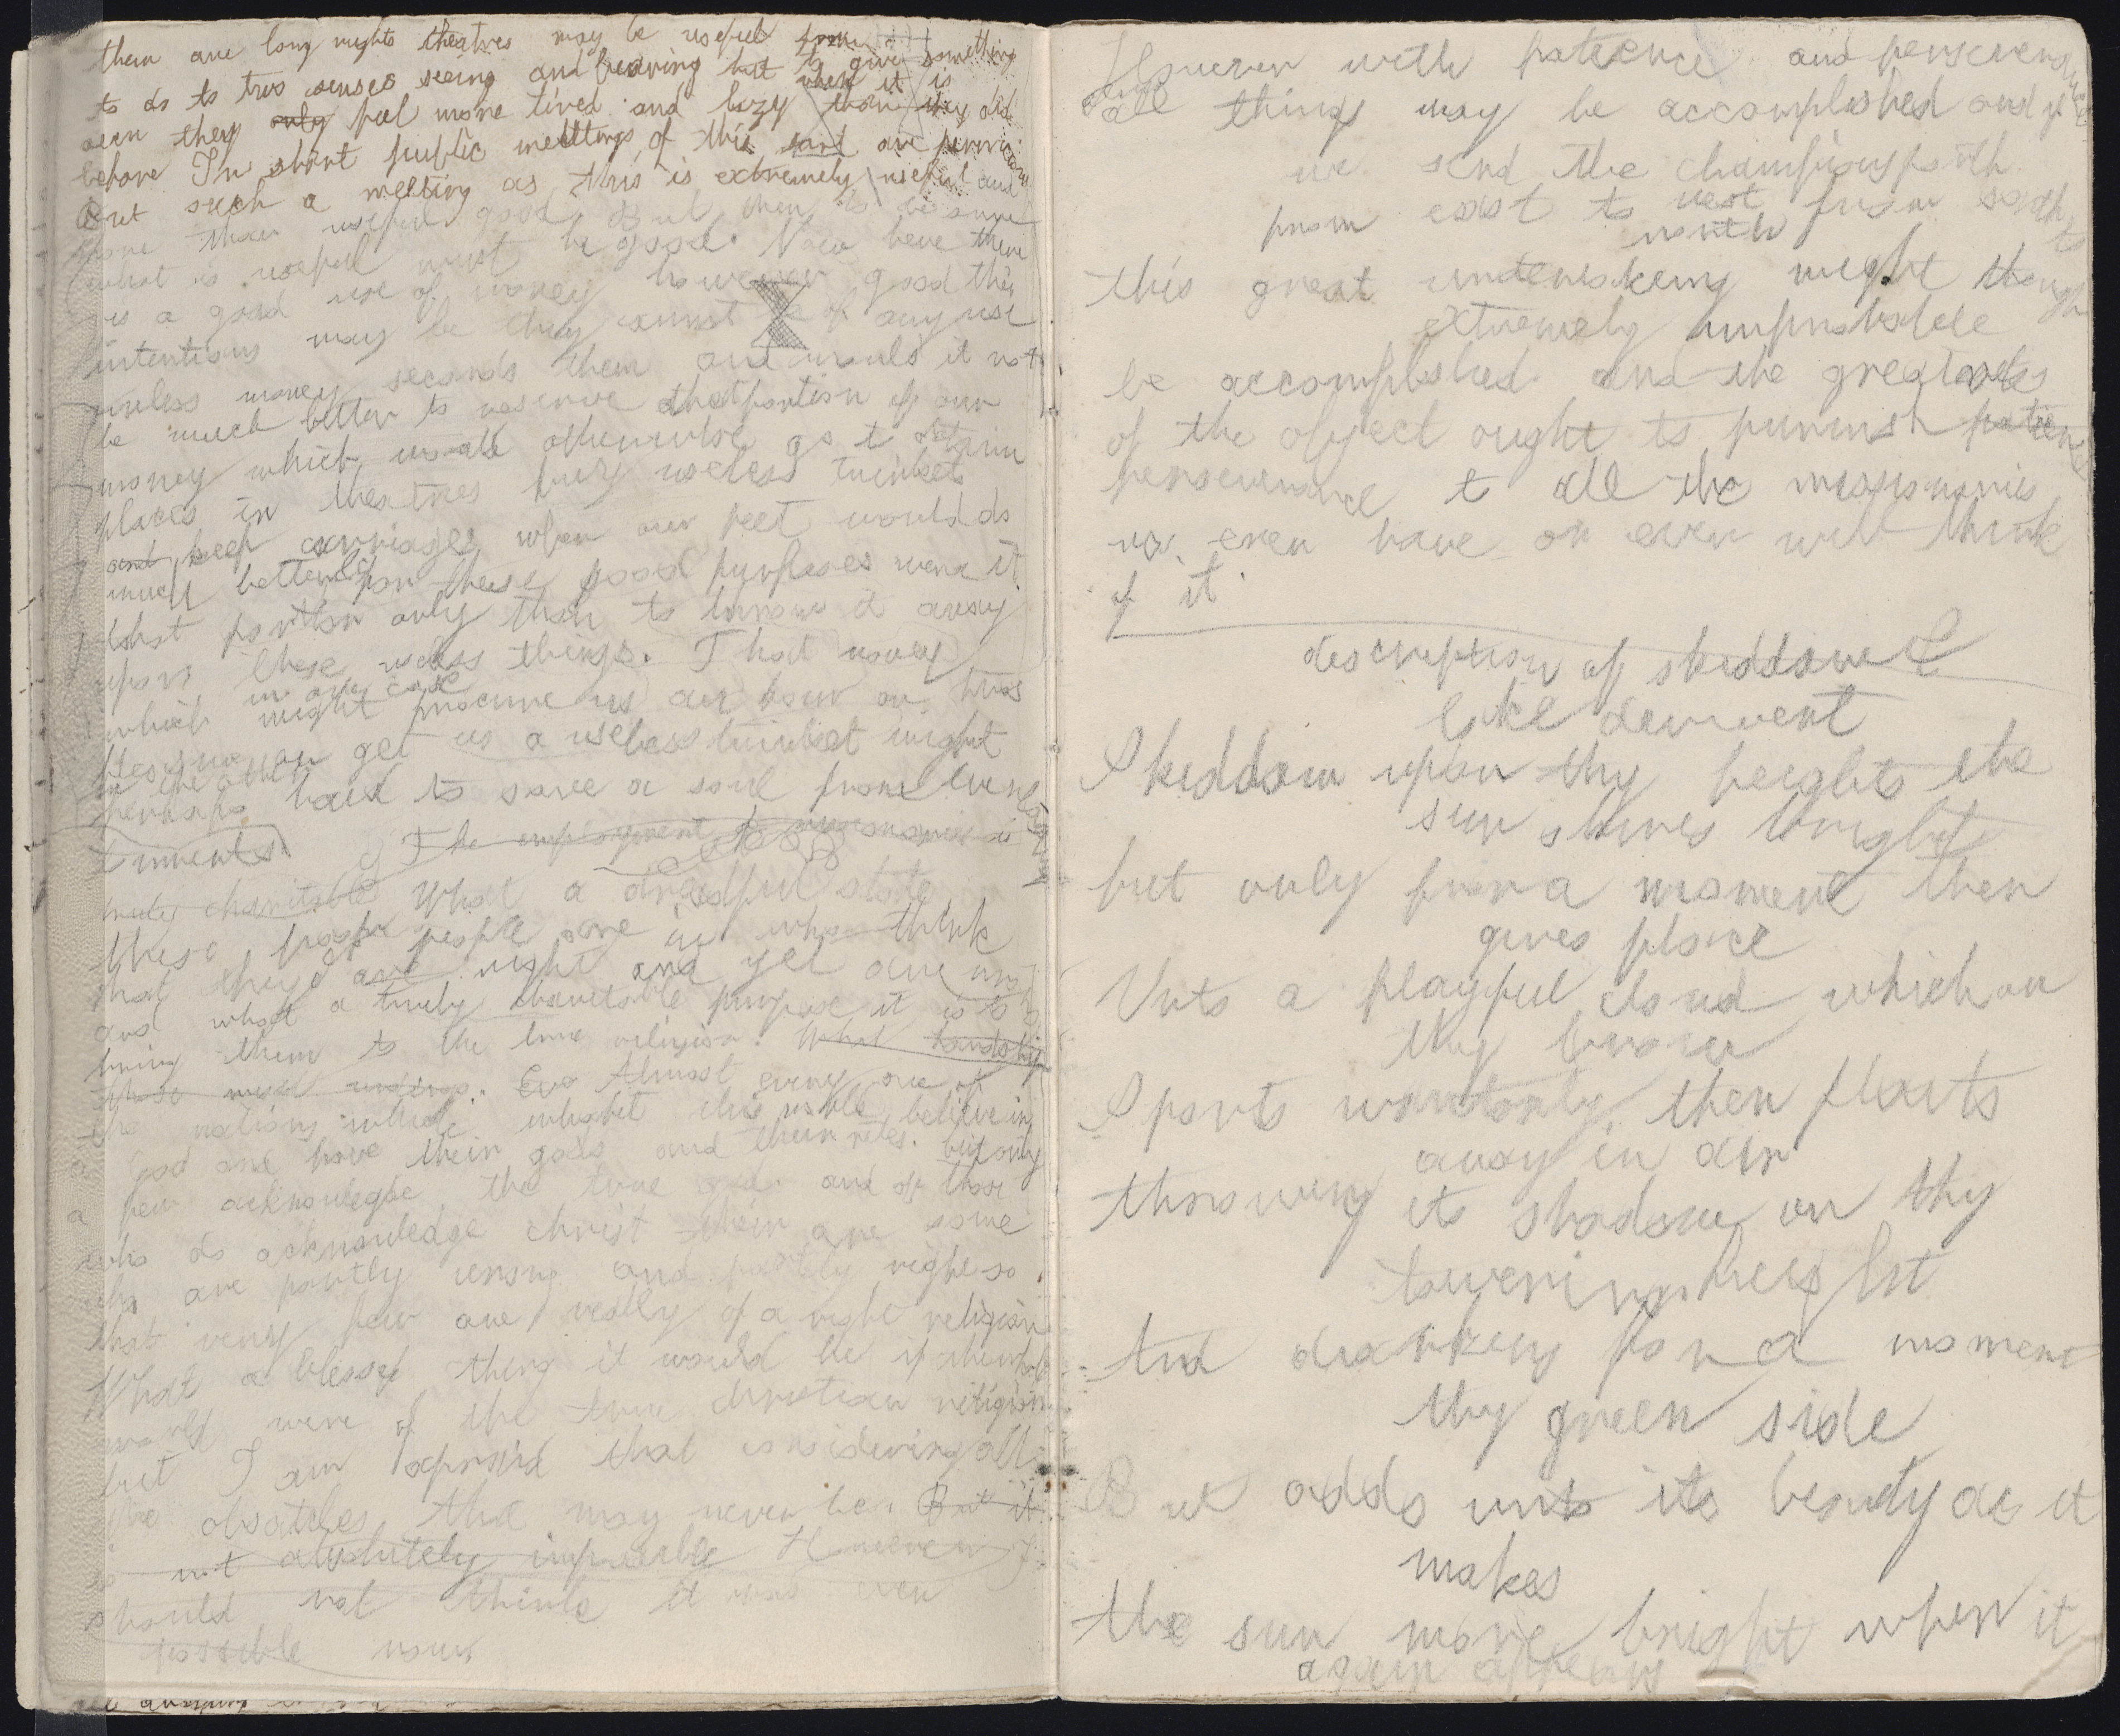 them are long nights theatres may be useful something
to do to two senses seeing and hearing but to give
even they only feel more tired and lazy when it is than they did
before In short public meetings of this sort are
But such a meeting as this is extremely useful and
more than useful good But then to be sure
what is useful must be good. Now here there
is a good use of money however good the
intentions may be they cannot be of any use
unless money seconds them and would it not
be much better to reserve that portion of our
money which would otherwise go to obtain
places in theatres buy useless trinkets
and keep carriages when our feet would do
much better for these good purposes were it
that portion only than to throw it away
upon these useless things. That money
which in one case might procure us an hour or two
or in the other get us a useless trinket might
perhaps have to save a soul from everlasting
torments. The employment of missionaries is
truly charitable What a dreadful state
these poor people are in who think
that they are right and yet are not
and what a truly charitable purpose it is to
bring them to the true religion. What hardships
these must undergo. Eve Almost every one of
the nations which inhabit this world believe in
a God and have their gods and their rites. but only
a few acknowlegde the true god and of those
who do acknowledge christ their are some
who are partly wrong and partly right so
that very few are really of a right religion
What a blessed thing it would be if the whole
world were of the true christian religion
but I am afraid that considering all
the obsatcles that may never be. But it
is not absolutely impossible However I
should not think it was even
possible now
However with patience and perseverance
all things may be accomplished and if
we send the champions forth
from east to west from south to
north
this great undertaking might though
extremely improbable
be accomplished and the greatness
of the object ought to furnish patience
perseverance to all the missionaries
we ever have or ever will think
of it.
description of skiddaw &
lake derwent
Skiddaw upon thy heights the
sun shines bright
but only for a moment then
gives place
Unto a playful cloud which on
thy brow
Sports wantonly, then floats
away in air
throwing its shadow on thy
towering height
And darkening for a moment
thy green side
But adds unto its beauty as it
makes
the sun more bright when it
again appears